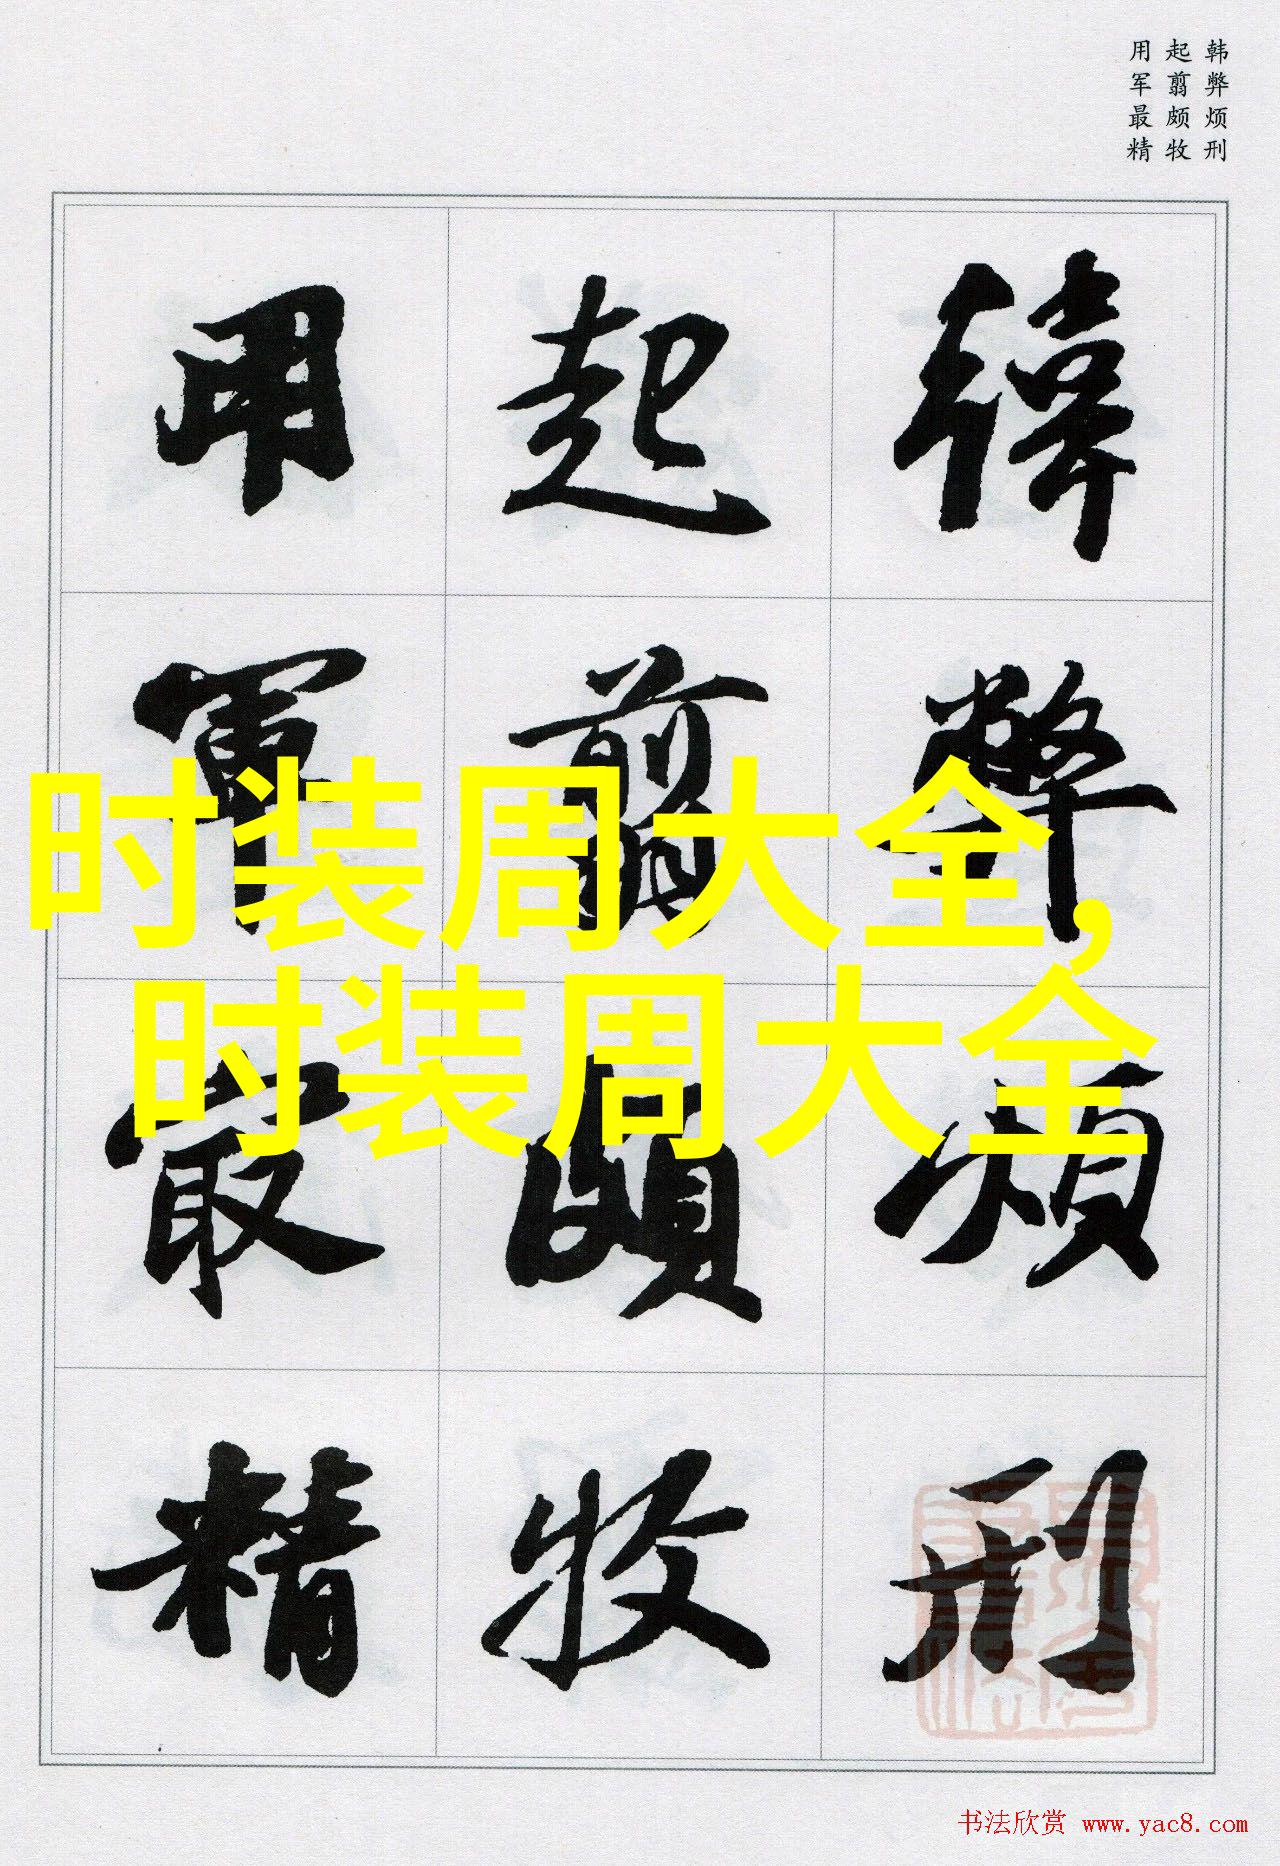 韩弊烦刑
起翦颇牧
用军最精
韓弊煩刑
起翦頗牧
用軍最精
时装周大全,
时装周大全
书法欣赏 www.yac8.com